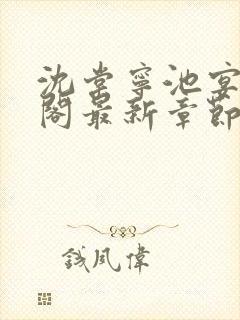 沈棠宁池宴
阁最新章节
钱凤伟